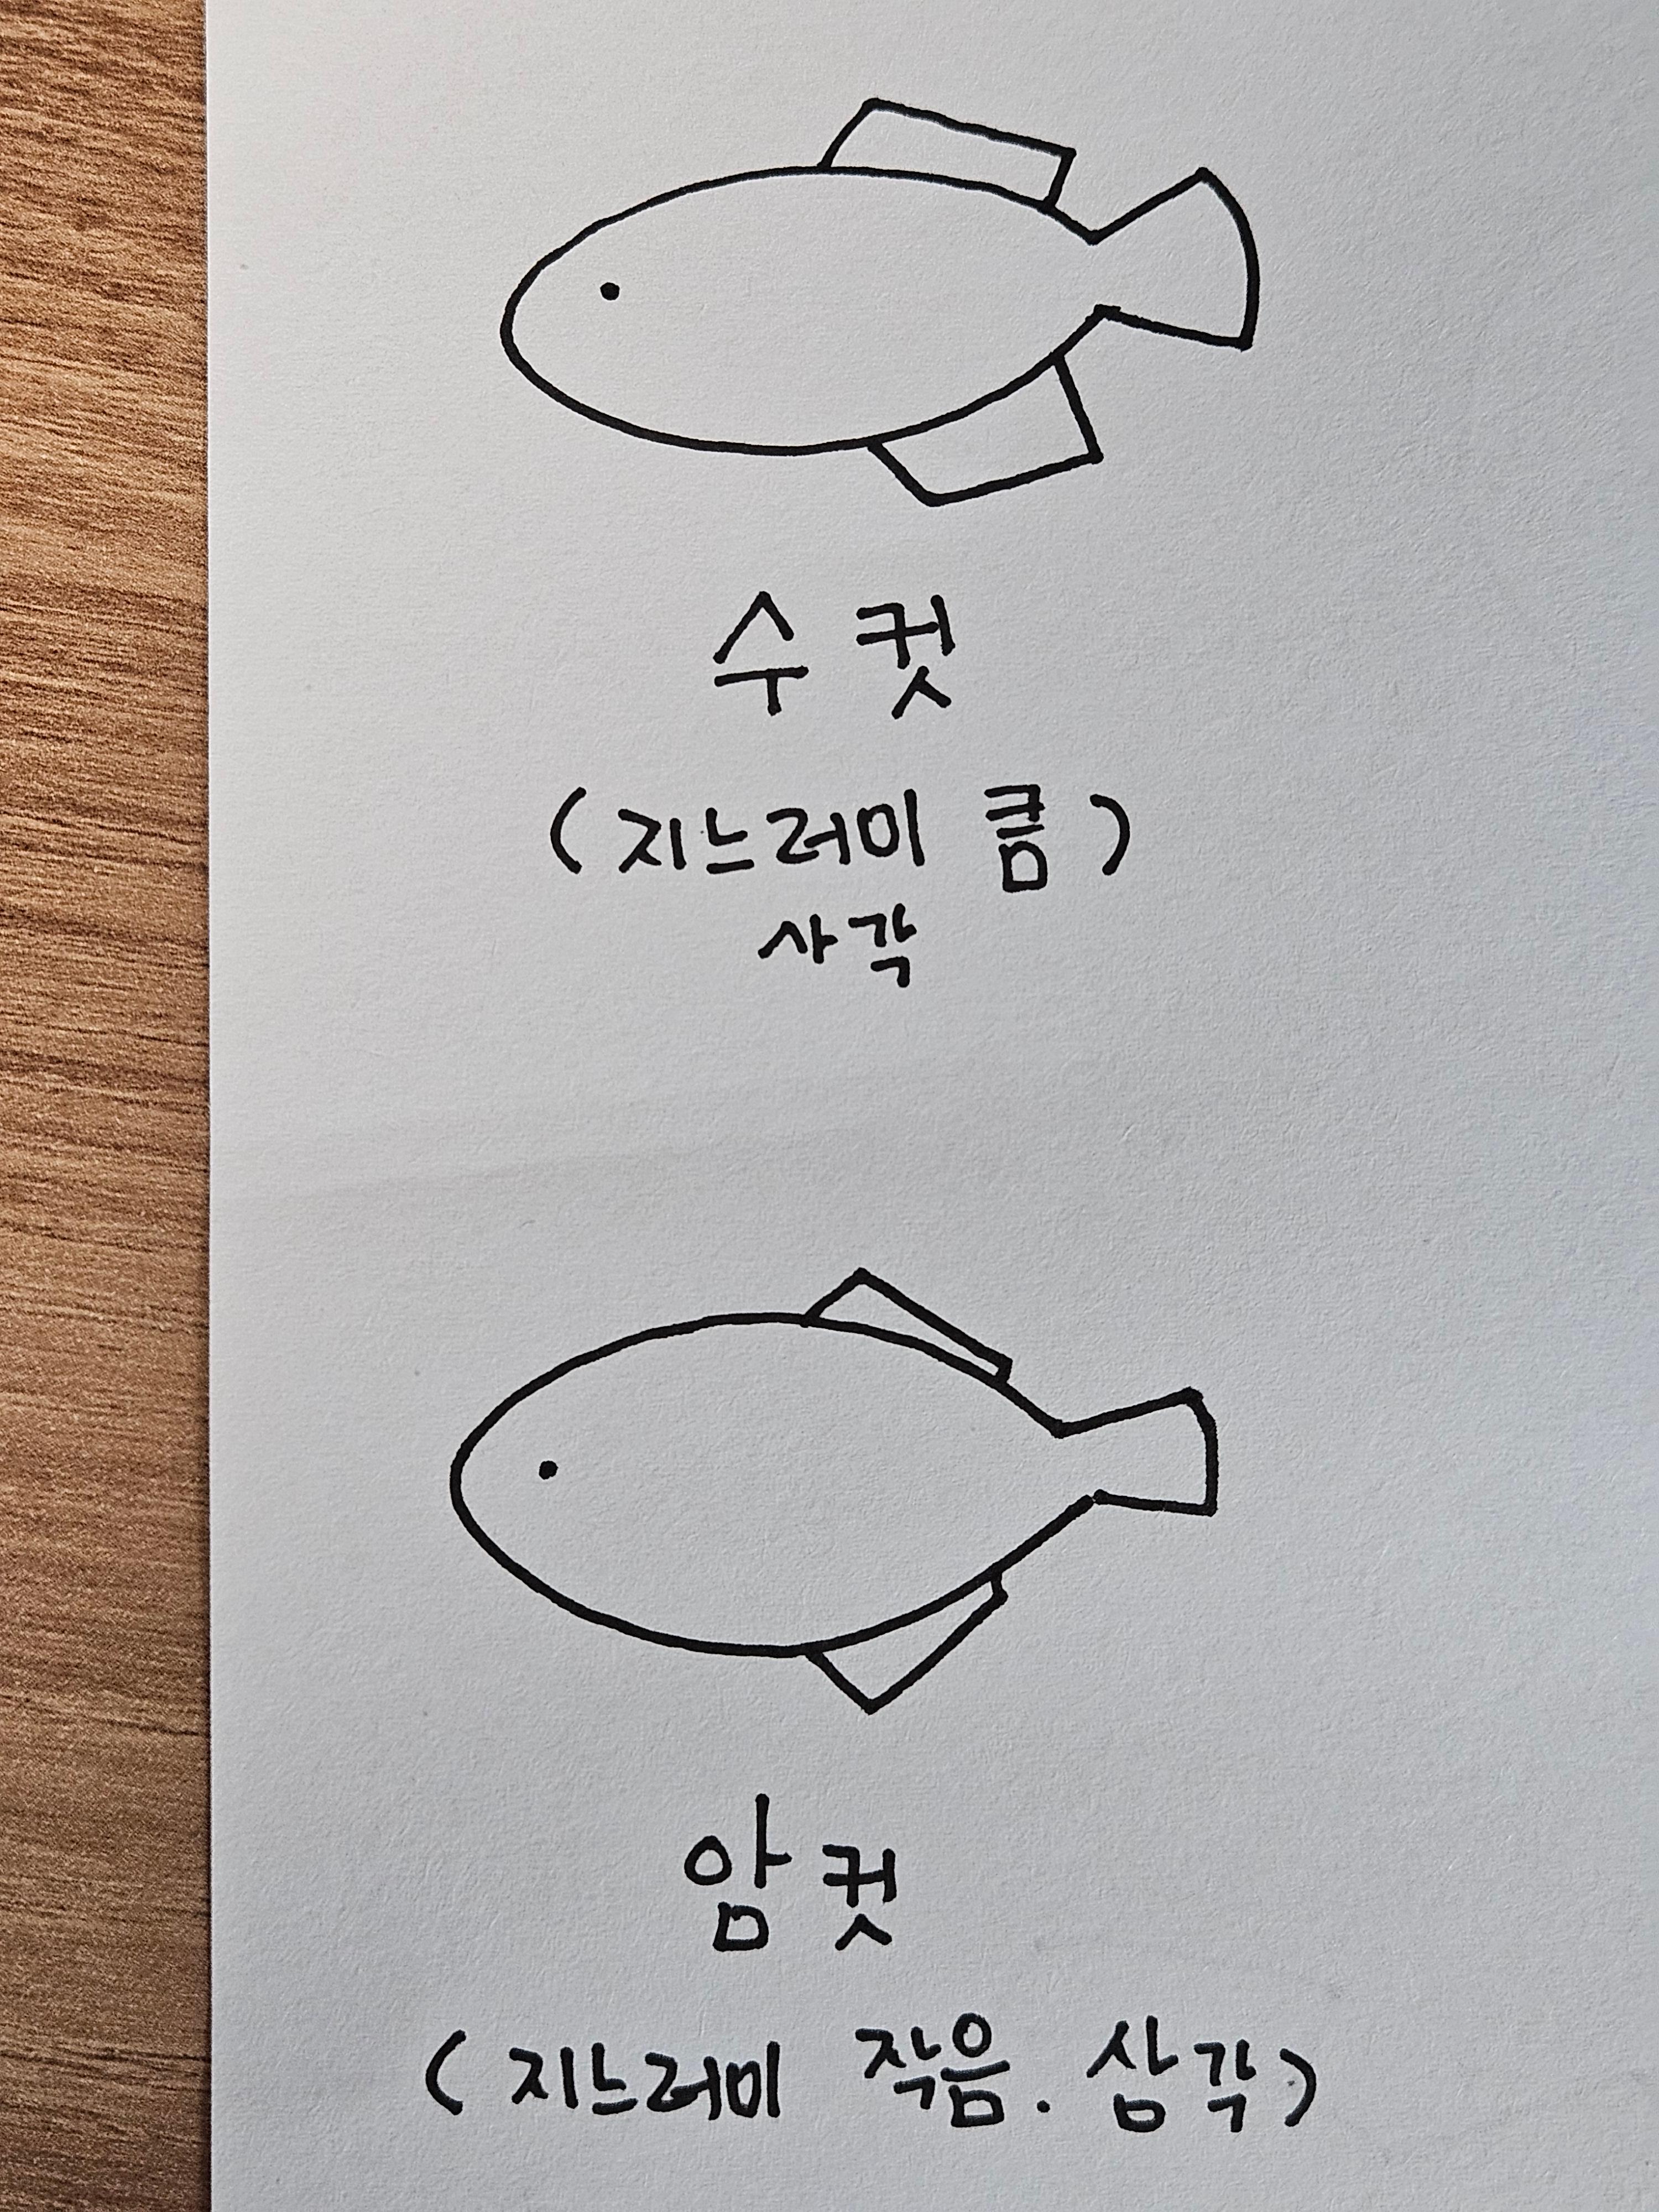 수컷
(지느러미 큼)
사각
암컷
(지느러미 작음. 삼각)